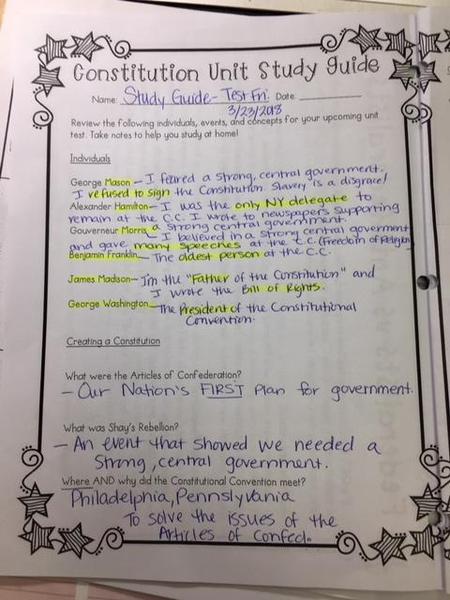 Constitution Unit Study Guide
Name: Study Guide- Test Fri. Date:
3/23/2018
Review the following individuals, events, and concepts for your upcoming unit
test. Take notes to help you study at home!
Individuals
George Mason - I feared a strong, central government.
I refused to sign the Constitution. Slavery is a disgrace!
Alexander Hamilton - I was the only NY delegate to
remain at the C.C. I wrote to newspapers supporting
a strong central government.
Gouverneur Morris - I believed in a strong central government
and gave many speeches at the C.C. (Freedom of Religion)
Benjamin Franklin - The oldest person at the C.C.
James Madison - I'm the "Father of the Constitution" and
I wrote the Bill of Rights.
George Washington - The President of the Constitutional
Convention.
Creating a Constitution
What were the Articles of Confederation?
- Our Nation's FIRST plan for government.
What was Shay's Rebellion?
- An event that showed we needed a
strong, central government.
Where AND why did the Constitutional Convention meet?
Philadelphia, Pennsylvania
To solve the issues of the
Articles of Confed.